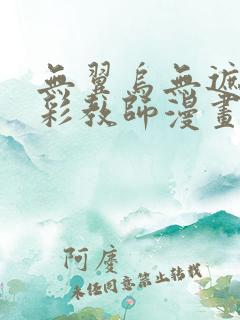 無翼烏無遮
彩教師漫畫
阿慶
未经同意禁止转载